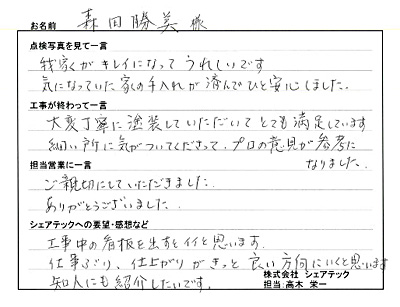 お名前 森田勝美 様
点検写真を見て一言
我家がキレイになって うれしいです
気になっていた家の手入れが 済んでひと安心しました.
工事が終わって一言
大変丁寧に塗装していただいて とても満足しています
細い所に気がついてくださって、プロの意見が参考に
なりました.
担当営業に一言
ご親切にしていただきました.
ありがとうございました.
シェアテックへの要望・感想など
工事中の看板を出すとイイと思います.
仕事ぶり、仕上がりがきっと 良い方向にいくと思います
知人にも紹介したいです.
株式会社 シェアテック
担当:高木 栄一